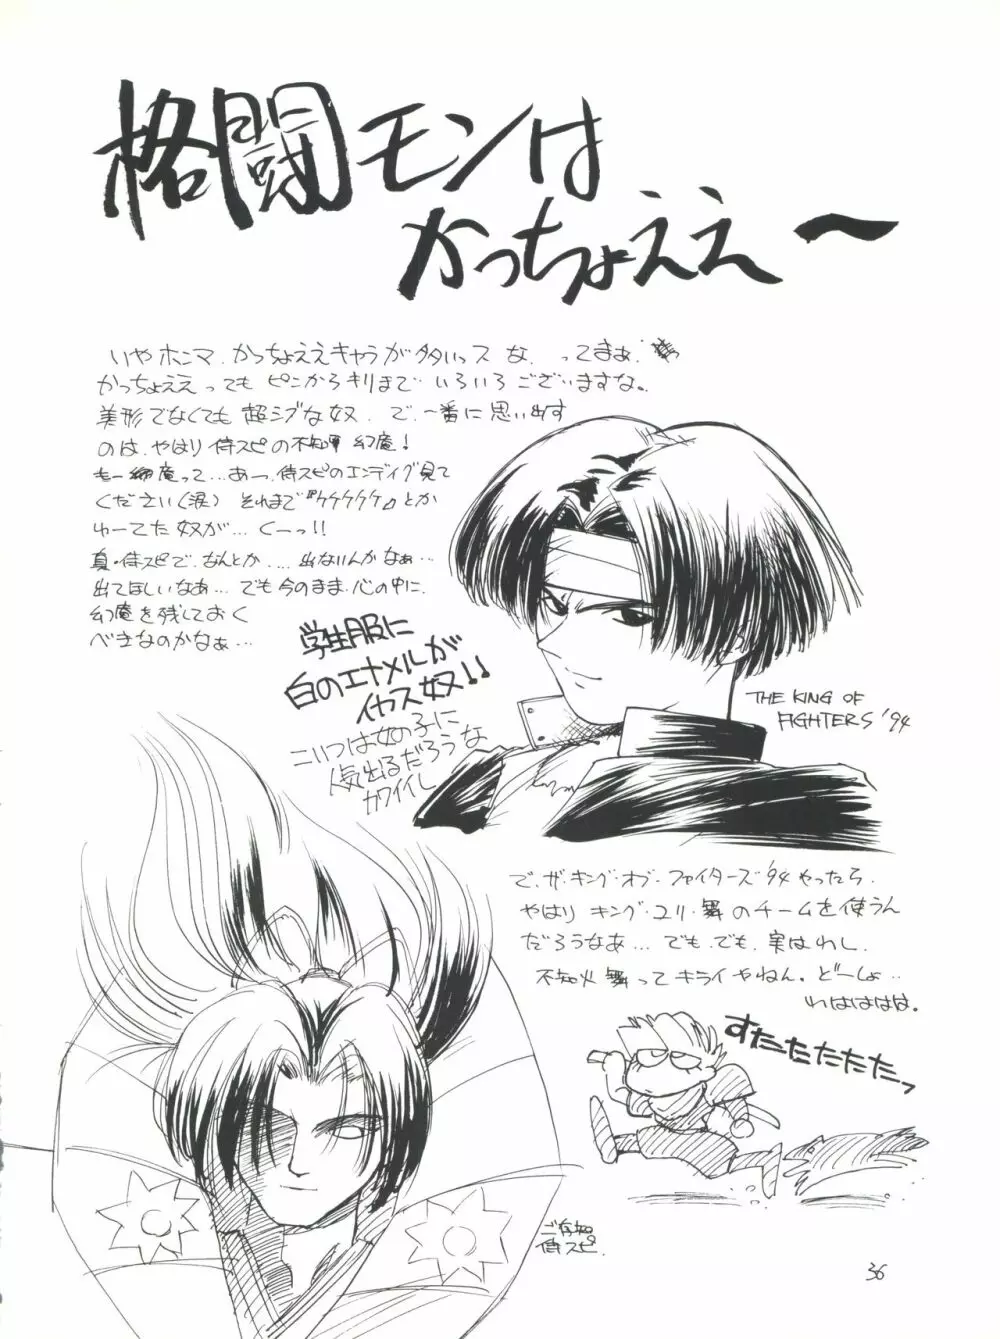 格闘モンは
かっちょええー
いやホンマ、かっちょええキャラが多いっスな、ってまあ、
かっちょええってもピンからキリまでいろいろございますな。
美形でなくても超シブな奴、で、一番に思い出す
のは、やはり侍スピの不知火幻庵!
もー幻庵って…あーっ、侍スピのエンディグ見て
ください(涙) それまで『ケケケケケ』とか
ゆーてた奴が…くーっ!!
真・侍スピで、なんとか…出ないんかなぁ…
出てほしいなあ…でも今のまま、心の中に
幻庵を残しておく
べきなのかなぁ…
学生服に
白のエナメルが
イカス奴!!
こいつは女の子に
人気出るだろうな
カワイイし
THE KING OF
FIGHTERS '94
で、ザ・キング・オブ・ファイターズ'94やったら、
やはりキング・ユリ・舞のチームを使うん
だろうなあ…でも、でも、実はわし、
不知火舞ってキライやねん。どーしょ…
わはははは。
すたーたたたたっ
ご存知
侍スピ
36